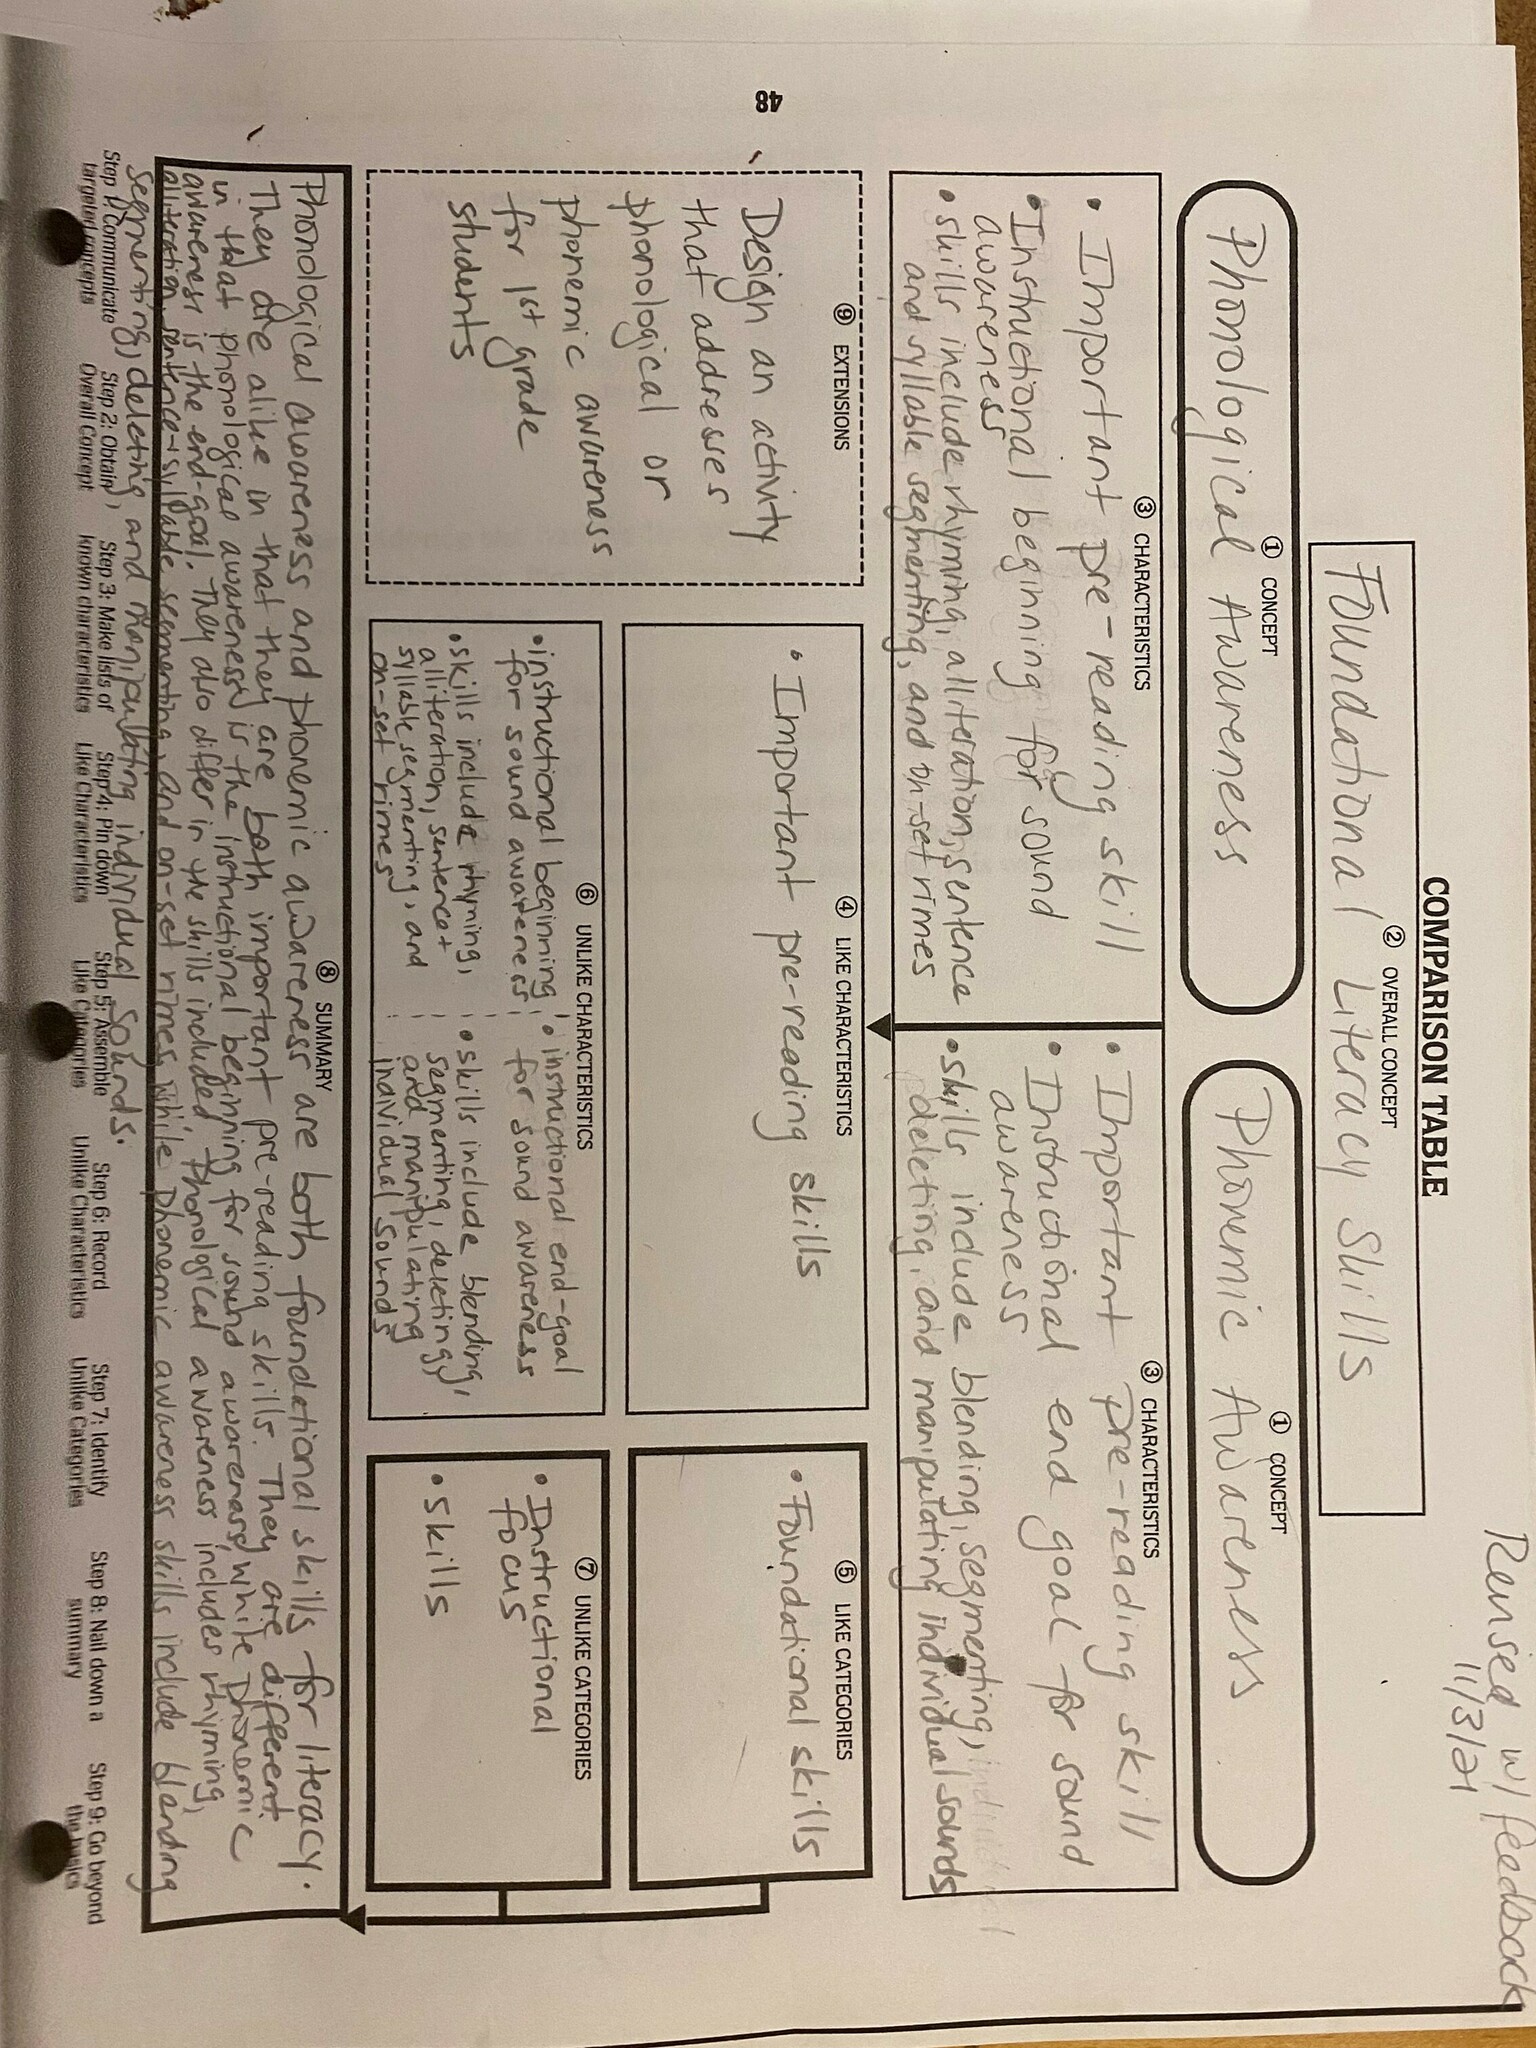 Revised w/ feedback
11/3/21
COMPARISON TABLE
② OVERALL CONCEPT
Foundational Literacy Skills
① CONCEPT
Phonological Awareness
① CONCEPT
Phonemic Awareness
③ CHARACTERISTICS
• Important pre-reading skill
• Instructional beginning for sound
awareness
• skills include rhyming, alliteration, sentence
and syllable segmenting, and on-set rimes
③ CHARACTERISTICS
• Important pre-reading skill
• Instructional end goal for sound
awareness
• skills include blending, segmenting,
deleting, and manipulating individual sounds
④ LIKE CHARACTERISTICS
• Important pre-reading skills
⑤ LIKE CATEGORIES
• Foundational skills
⑨ EXTENSIONS
Design an activity
that addresses
phonological or
phonemic awareness
for 1st grade
students
⑥ UNLIKE CHARACTERISTICS
• instructional beginning
for sound awareness
• skills include rhyming,
alliteration, sentence +
syllable segmenting, and
on-set rimes
• instructional end-goal
for sound awareness
• skills include blending,
segmenting, deleting,
and manipulating
individual sounds
⑦ UNLIKE CATEGORIES
• Instructional
focus
• skills
⑧ SUMMARY
Phonological awareness and phonemic awareness are both foundational skills for literacy.
They are alike in that they are both important pre-reading skills. They are different
in that phonological awareness is the instructional beginning for sound awareness, while phonemic
awareness is the end-goal. They also differ in the skills included. Phonological awareness includes rhyming,
alliteration, sentence + syllable segmenting, and on-set rimes, while phonemic awareness skills include blending
segmenting, deleting, and manipulating individual sounds.
Step 1: Communicate
targeted concepts
Step 2: Obtain
Overall Concept
Step 3: Make lists of
known characteristics
Step 4: Pin down
Like Characteristics
Step 5: Assemble
Like Categories
Step 6: Record
Unlike Characteristics
Step 7: Identify
Unlike Categories
Step 8: Nail down a
summary
Step 9: Go beyond
the basics
48